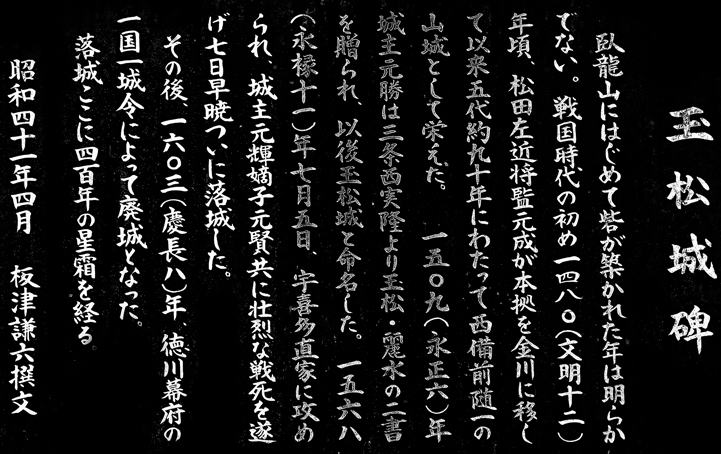 玉松城碑
臥龍山にはじめて砦が築かれた年は明らか
でない。戦国時代の初め一四八〇(文明十二)
年頃、松田左近将監元成が本拠を金川に移し
て以来五代約九十年にわたって西備前随一の
山城として栄えた。一五〇九(永正六)年
城主元勝は三条西実隆より玉松・麗水の二書
を贈られ、以後玉松城と命名した。一五六八
(永禄十一)年七月五日、宇喜多直家に攻め
られ、城主元輝嫡子元賢共に壮烈な戦死を遂
げ七日早暁ついに落城した。
その後、一六〇三(慶長八)年、徳川幕府の
一国一城令によって廃城となった。
落城ここに四百年の星霜を経る
昭和四十一年四月 板津謙六撰文